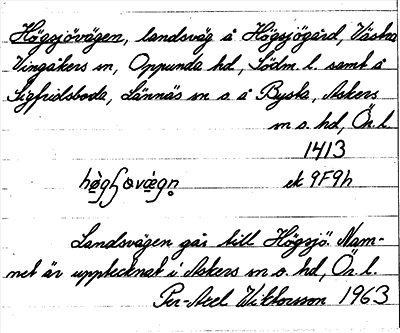 Högsjövägen, landsväg å Högsjögård, Västra
Vingåkers sn, Oppunda hd, Södm. l. samt å
Sigfridsboda, Lännäs sn o å Byska, Askers
sn o. hd, Ör. l.
1413
hø̀gʃøvægn̥ ek 9F9h
Landsvägen går till Högsjö. Nam-
net är upptecknat i Askers sn o. hd, Ör. l.
Per-Axel Wiktorsson 1963